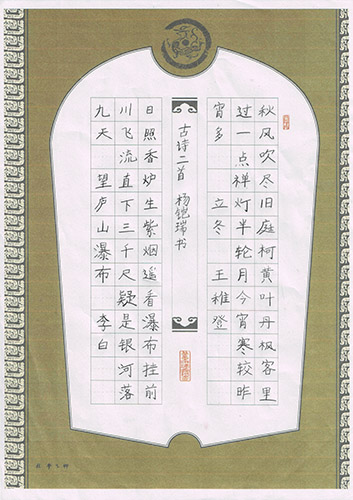 秋风吹尽旧庭柯黄叶丹枫客里
过一点禅灯半轮月今宵寒较昨
宵多 立冬 王稚登
古诗二首 杨铠瑞书
日照香炉生紫烟遥看瀑布挂前
川飞流直下三千尺疑是银河落
九天 望庐山瀑布 李白